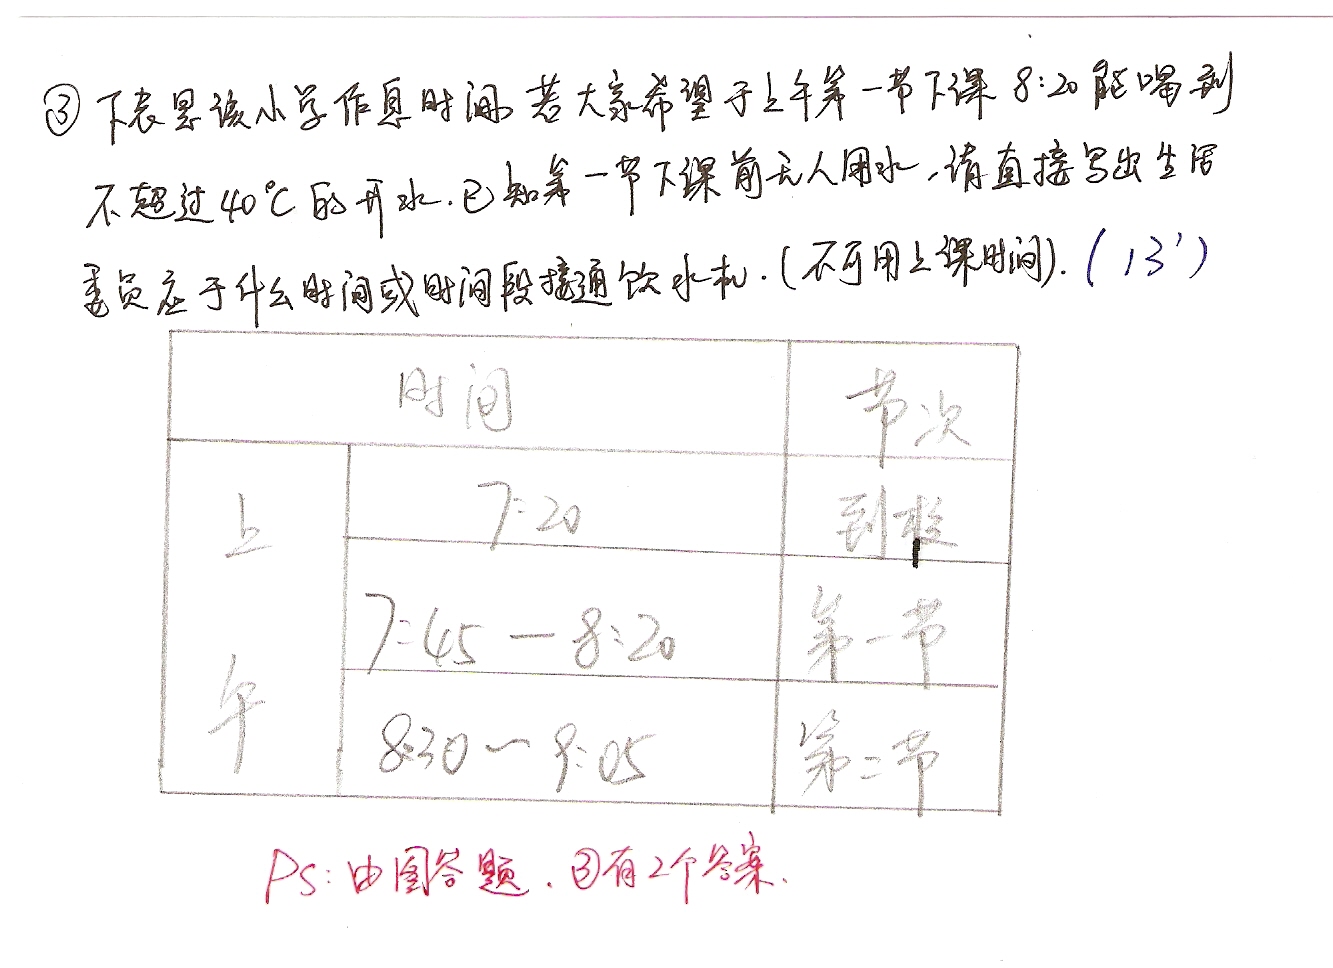 ③下表是该小学作息时间,若大家希望于上午第一节下课 8:20 能喝到
不超过40℃的开水.已知第一节下课前无人用水,请直接写出生活
委员应于什么时间或时间段接通饮水机.(不可用上课时间).(13')
时间 节次
上午
7:20 到校
7:45 — 8:20 第一节
8:30 ~ 9:05 第二节
Ps:由图答题.③有2个答案.